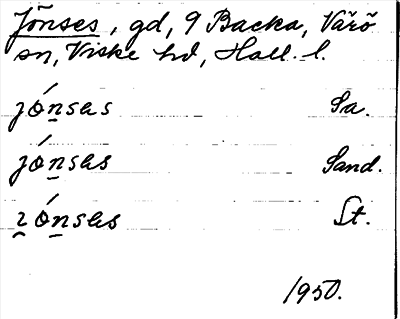 Jönses, gd, 9 Backa, Värö
sn, Viske hd, Hall. l.
jónsəs Sa.
jónsəs Sand.
ɿónsəs St.
1950.